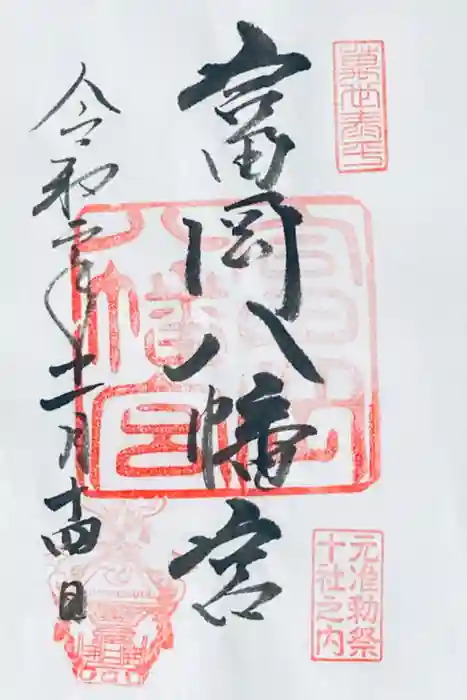 萬世泰平
元准勅祭
十社之内
富岡八幡宮
富岡
八幡宮
令和二年十一月十四日